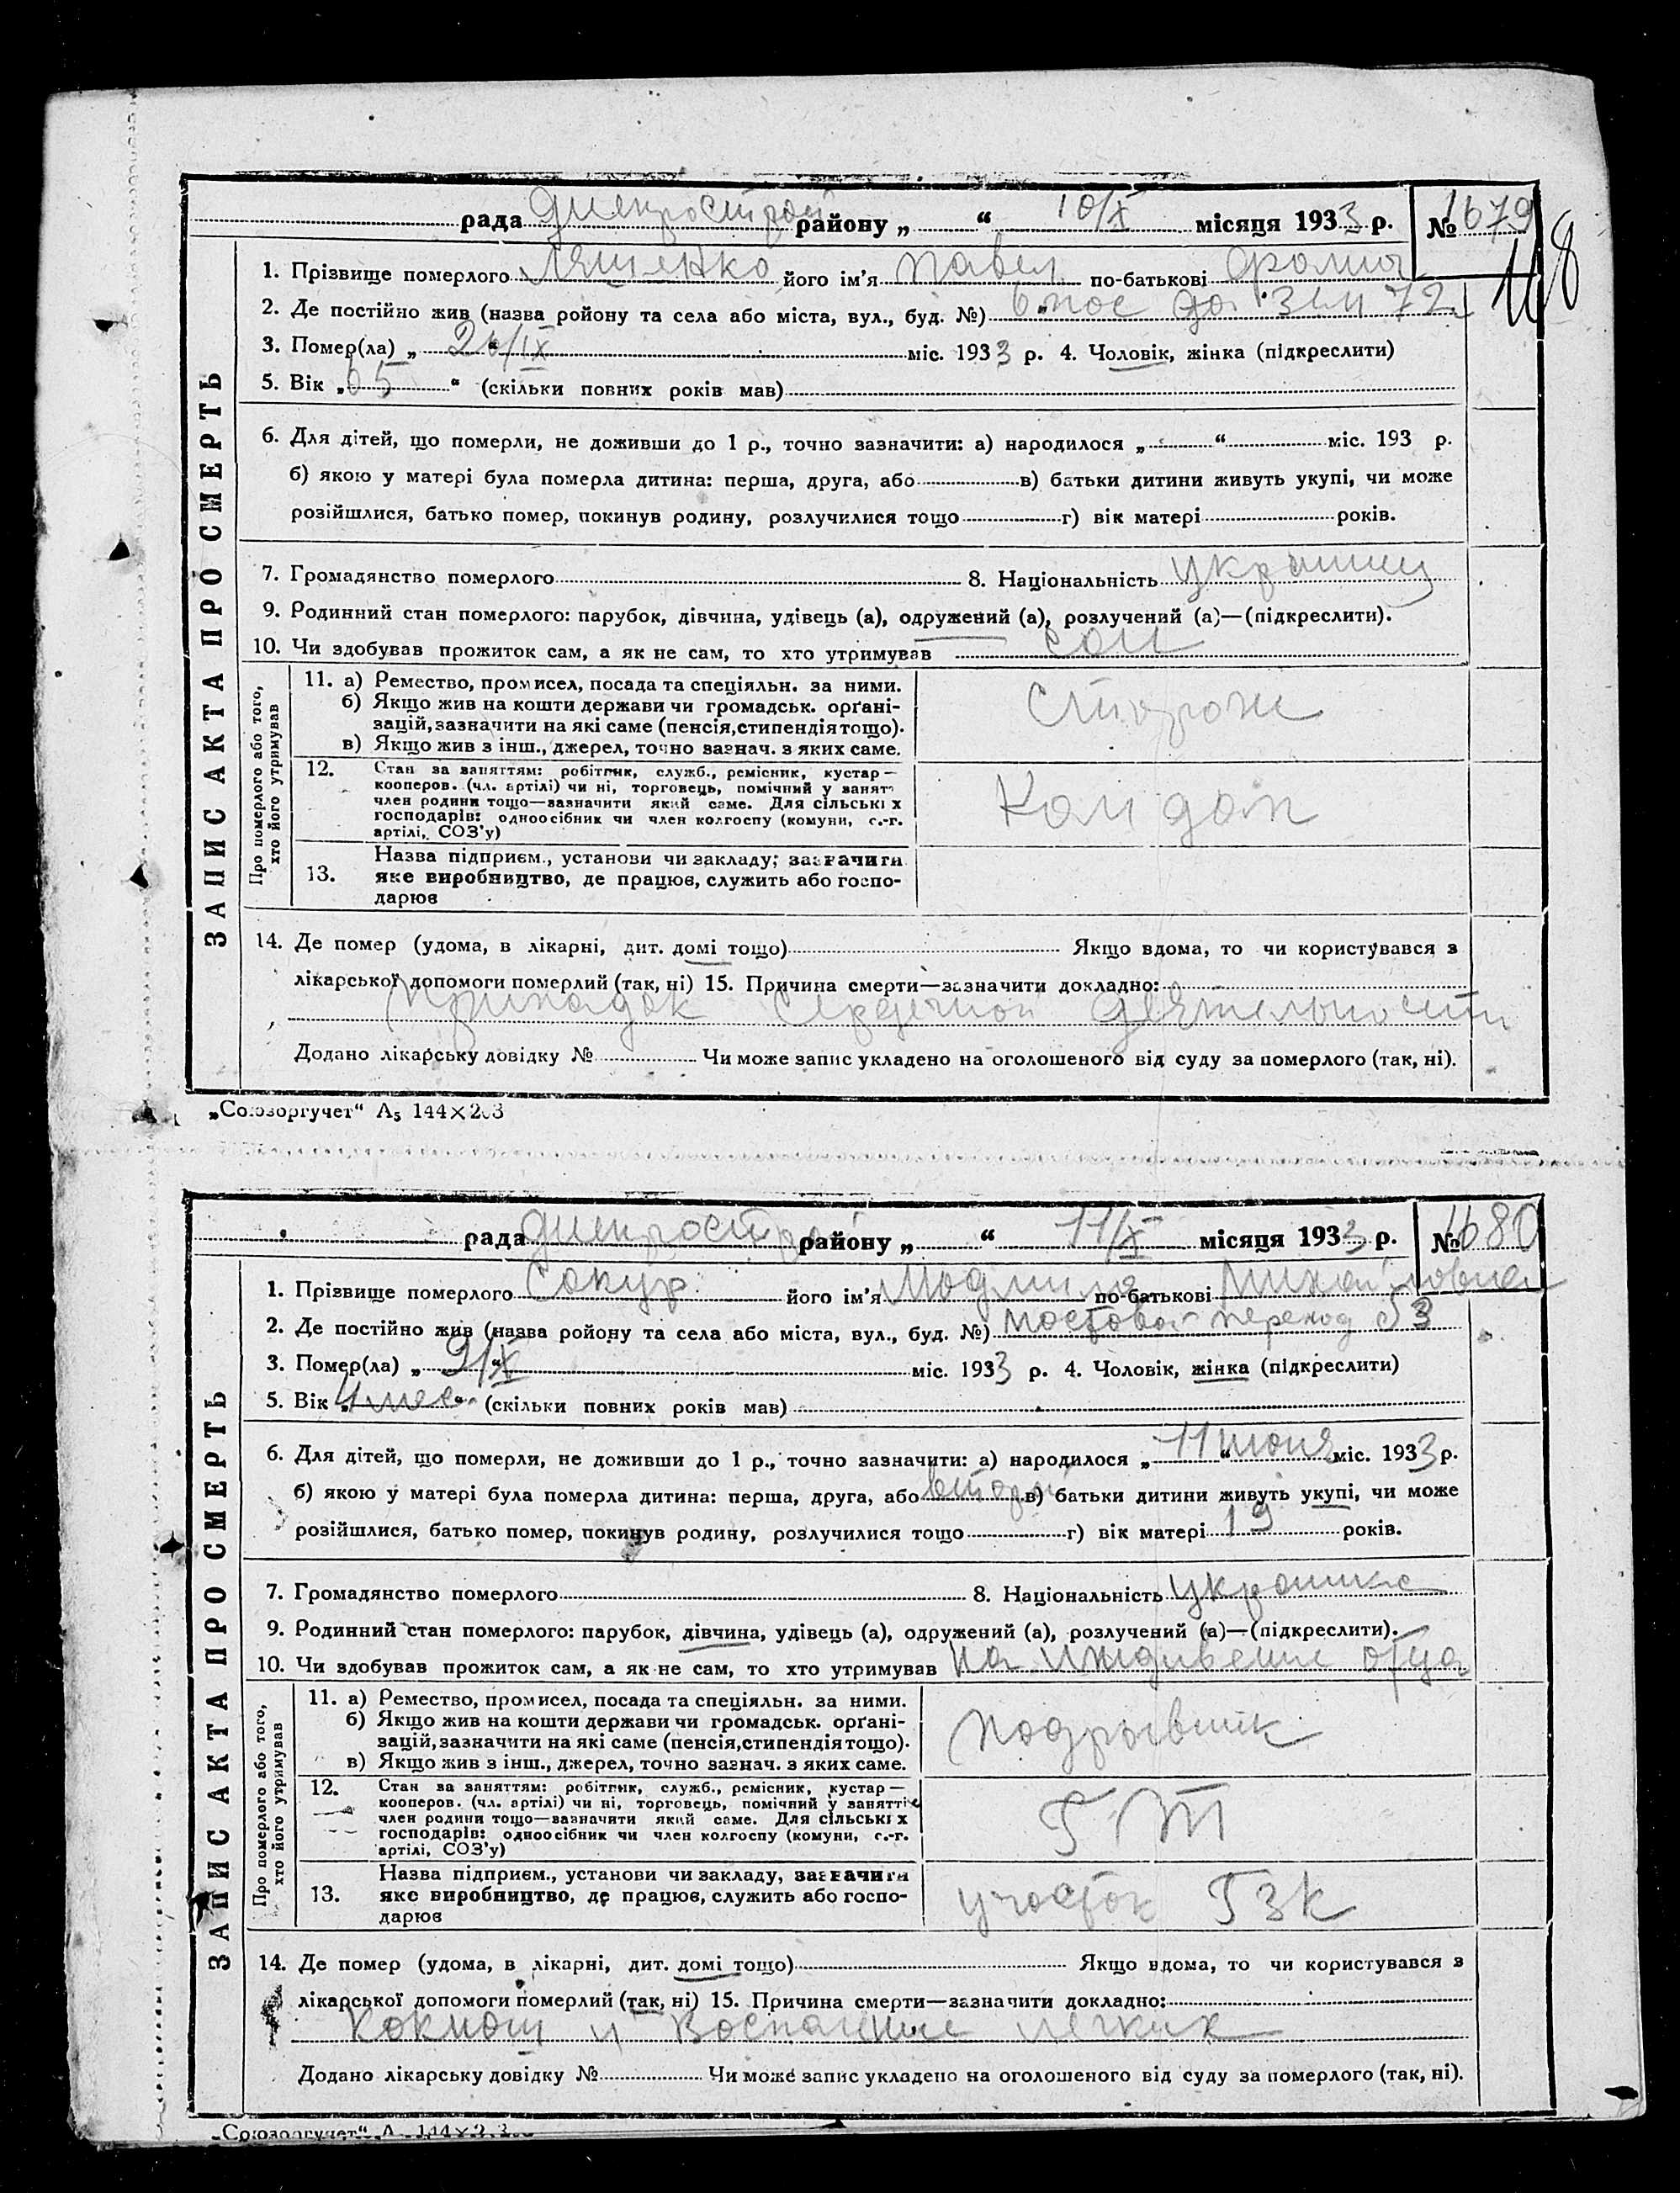 рада Днепрострой району „ “ 10/X місяця 1933 р. № 1679
118
1. Прізвище померлого Ляшенко його ім'я Павел по-батькові
2. Де постійно жив (назва ройону та села або міста, вул., буд. №) 6 пос 72
3. Помер(ла) „ 26/IX “ міс. 1933 р. 4. Чоловік, жінка (підкреслити)
5. Вік „ 65 “ (скільки повних років мав)
6. Для дітей, що померли, не доживши до 1 р., точно зазначити: а) народилося „ “ міс. 193 р.
б) якою у матері була померла дитина: перша, друга, або в) батьки дитини живуть укупі, чи може
розійшлися, батько помер, покинув родину, розлучилися тощо г) вік матері років.
7. Громадянство померлого 8. Національність украинец
9. Родинний стан померлого: парубок, дівчина, удівець (а), одружений (а), розлучений (а)—(підкреслити).
10. Чи здобував прожиток сам, а як не сам, то хто утримував сам
ЗАПИС АКТА ПРО СМЕРТЬ
Про померлого або того, хто його утримував
11. а) Ремество, промисел, посада та спеціяльн. за ними.
б) Якщо жив на кошти держави чи громадськ. орґані-
зацій, зазначити на які саме (пенсія, стипендія тощо).
в) Якщо жив з інш., джерел, точно зазнач. з яких саме.
Сторож
12. Стан за заняттям: робітник, служб., ремісник, кустар—
кооперов. (чл. артілі) чи ні, торговець, помічний у занятт
член родини тощо—зазначити який саме. Для сільських
господарів: одноосібник чи член колгоспу (комуни, с.-г.
артілі, СОЗ'у)
13. Назва підприєм., установи чи закладу; зазначити
яке виробництво, де працює, служить або госпо-
дарює
14. Де помер (удома, в лікарні, дит. домі тощо) Якщо вдома, то чи користувався з
лікарської допомоги померлий (так, ні) 15. Причина смерти—зазначити докладно:
припадок сердечной деятельности
Додано лікарську довідку № Чи може запис укладено на оголошеного від суду за померлого (так, ні).
„Союзоргучет“ А₅ 144×203
рада Днепрострой району „ “ 11/X місяця 1933 р. № 1680
1. Прізвище померлого Сокур його ім'я Людмила по-батькові Михайловна
2. Де постійно жив (назва ройону та села або міста, вул., буд. №) мостовой переход б 3
3. Помер(ла) „ 9/X “ міс. 1933 р. 4. Чоловік, жінка (підкреслити)
5. Вік „ 4 мес “ (скільки повних років мав)
6. Для дітей, що померли, не доживши до 1 р., точно зазначити: а) народилося „ 11 “ июня міс. 1933 р.
б) якою у матері була померла дитина: перша, друга, або второй в) батьки дитини живуть укупі, чи може
розійшлися, батько помер, покинув родину, розлучилися тощо г) вік матері 19 років.
7. Громадянство померлого 8. Національність украинка
9. Родинний стан померлого: парубок, дівчина, удівець (а), одружений (а), розлучений (а)—(підкреслити).
10. Чи здобував прожиток сам, а як не сам, то хто утримував на иждивение отца
ЗАПИС АКТА ПРО СМЕРТЬ
Про померлого або того, хто його утримував
11. а) Ремество, промисел, посада та спеціяльн. за ними.
б) Якщо жив на кошти держави чи громадськ. орґані-
зацій, зазначити на які саме (пенсія, стипендія тощо).
в) Якщо жив з інш., джерел, точно зазнач. з яких саме.
подрывник
12. Стан за заняттям: робітник, служб., ремісник, кустар—
кооперов. (чл. артілі) чи ні, торговець, помічний у занятті
член родини тощо—зазначити який саме. Для сільських
господарів: одноосібник чи член колгоспу (комуни, с.-г.
артілі, СОЗ'у)
13. Назва підприєм., установи чи закладу, зазначити
яке виробництво, де працює, служить або госпо-
дарює
участок ГЗК
14. Де помер (удома, в лікарні, дит. домі тощо) Якщо вдома, то чи користувався з
лікарської допомоги померлий (так, ні) 15. Причина смерти—зазначити докладно:
коклюш и воспаление легких
Додано лікарську довідку № Чи може запис укладено на оголошеного від суду за померлого (так, ні).
„Союзоргучет“ А 144×203